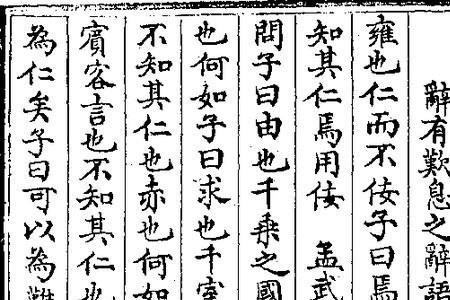 辭有歎息之辭語
雍也仁而不佞子曰焉
知其仁焉用佞　孟武
問子曰由也千乘之國
也何如子曰求也千室
不知其仁也赤也何如
賓客言也不知其仁也
為仁矣子曰可以為難